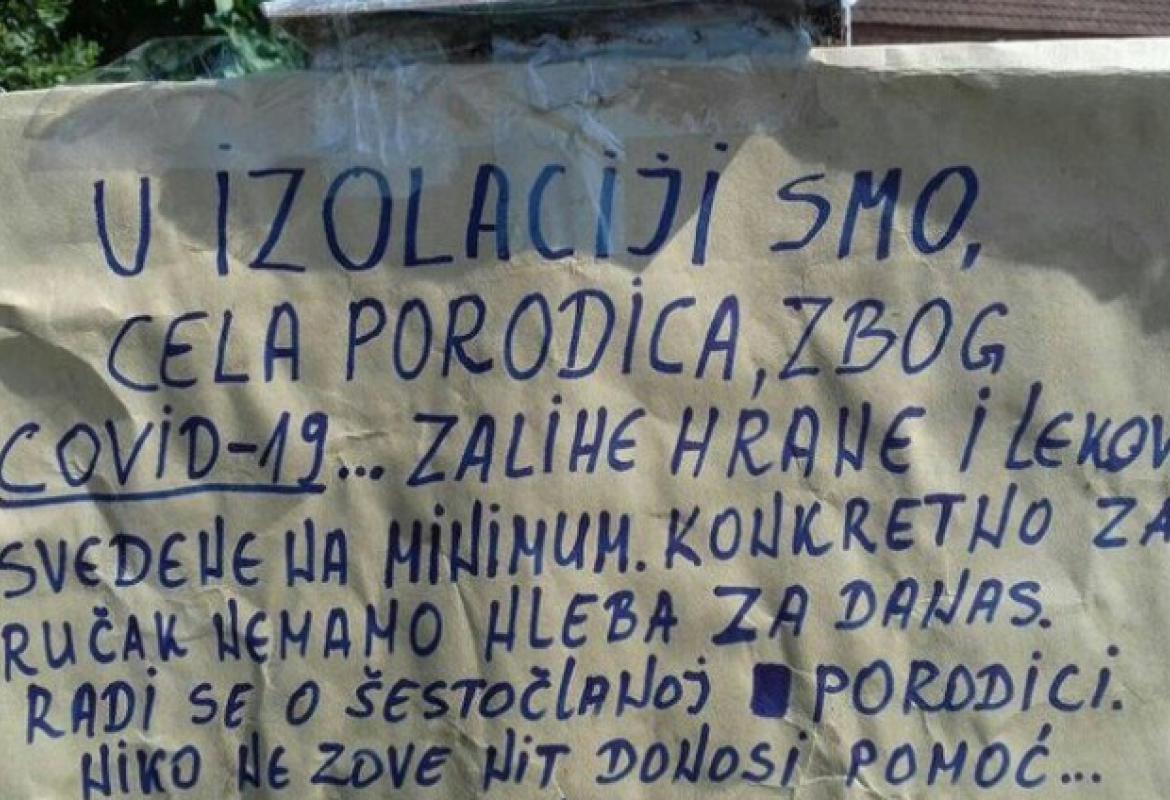 U IZOLACIJI SMO,
CELA PORODICA, ZBOG
COVID-19... ZALIHE HRANE I LEKOV
SVEDENE NA MINIMUM. KONKRETNO ZA
RUČAK NEMAMO HLEBA ZA DANAS.
RADI SE O ŠESTOČLANOJ PORODICI.
NIKO NE ZOVE NIT DONOSI POMOĆ...